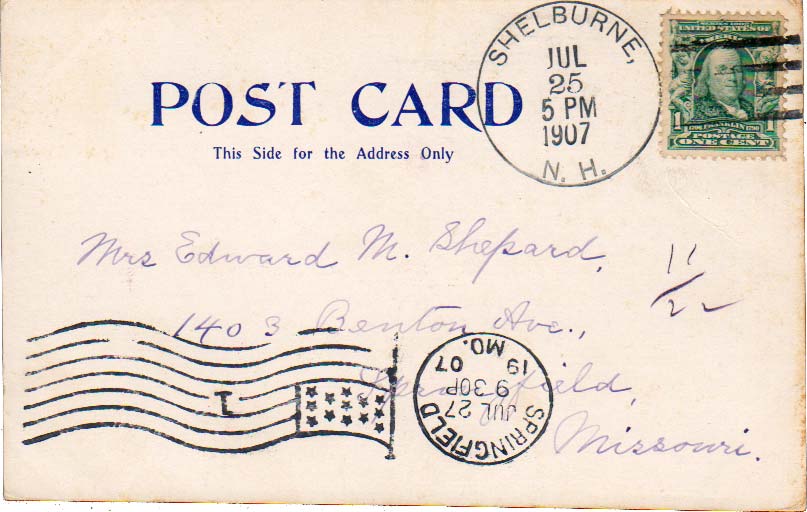 POST CARD
This Side for the Address Only
SHELBURNE,
JUL
25
5 PM
1907
N. H.
SERIES 1902
UNITED STATES OF
AMERICA
1790 FRANKLIN 1790
1 1
POSTAGE
ONE CENT
Mrs Edward M. Shepard,
11/22
1403 Benton Ave.,
Springfield,
Missouri.
1
SPRINGFIELD
JUL 27
9 30P
19 07
MO.